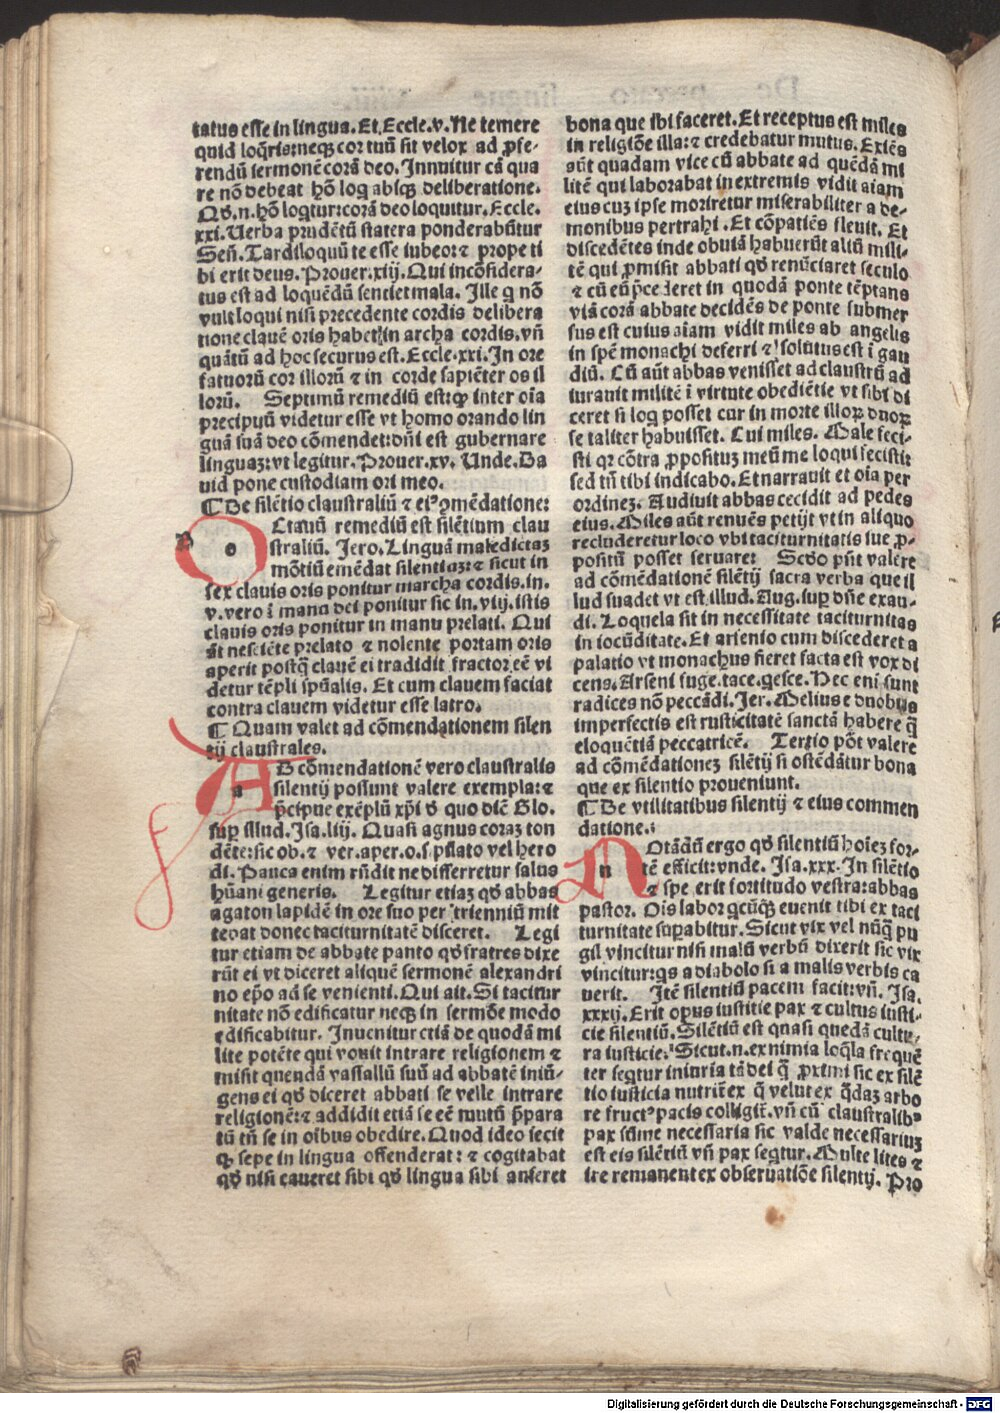 tatus esse in lingua. Et Eccle. v. Ne temere
quid loq̃ris: neqꝫ cor tuũ sit velox ad ꝓfe-
rendũ sermonẽ corã deo. Innuitur cã qua
re nõ debeat hõ loq̃ absqꝫ deliberatione.
Qꝺ .n. hõ loq̃tur: corã deo loquitur. Eccle.
xxi. Verba prudẽtũ statera ponderabũtur
Señ. Tardiloquũ te esse iubeo: ⁊ prope ti
bi erit deus. Prouer. xiij. Qui incõsidera-
tus est ad loquẽdũ sentiet mala. Ille q̃ nõ
vult loqui nisi precedente cordis delibera
tione clauẽ oris habet in archa cordis. vñ
quãtũ ad hoc securus est. Eccle. xxi. In ore
fatuorũ cor illorũ ⁊ in corde sapiẽter os il
lorũ. Septimũ remediũ est: ꝙ inter oĩa
precipuũ videtur esse vt homo orando lin
guã suã deo cõmendet: dñi est gubernare
linguaꝫ: vt legitur. Prouer. xv. Unde. Da
uid pone custodiam ori meo.
¶ De silẽtio claustraliũ ⁊ eiꝰ ꝯmẽdatione:
OCtauũ remediũ est silẽtium clau
straliũ. Jero. Linguã maledictaꝫ
mõtiũ emẽdat silentiaꝫ: ⁊ sicut in
sex clauis oris ponitur in archa cordis. in.
v. vero ĩ manu dei ponitur sic in. viij. istis
clauis oris ponitur in manu prelati. Qui
ãt nesciẽte prelato ⁊ nolente portam oris
aperit postq̃ clauẽ ei tradidit fractor eẽ vi
detur tẽpli spũalis. Et cum clauem faciat
contra clauem videtur esse latro.
¶ Quam valet ad cõmendationem silen
tij claustrales.
AD cõmendationẽ vero claustralis
silentij possunt valere exempla: ⁊
p̃cipue exẽplũ xp̃i ꝺ quo diẽ Glo.
suꝑ illud. Isa. liij. Quasi agnus coraꝫ ton
dẽte: sic ob. ⁊ ver. aper. o. s. pilato vel hero
di. Pauca enim rñdit ne differretur salus
hũani generis. Legitur etiaꝫ qꝺ abbas
agaton lapidẽ in ore suo per trienniũ mit
tebat donec taciturnitatẽ disceret. Legi
tur etiam de abbate panto qꝺ fratres dixe
rũt ei vt diceret aliquẽ sermonẽ alexandri
no ep̃o ad se venienti. Qui ait. Si tacitur
nitate nõ edificatur neqꝫ in sermõe modo
edificabitur. Inuenitur etiã de quodã mi
lite potẽte qui vouit intrare religionem ⁊
misit quendã vassallũ suũ ad abbatẽ iniũ-
gens ei qꝺ diceret abbati se velle intrare
religionẽ: ⁊ addidit etiã se eẽ mutũ p̃para
tũ tñ se in oĩbus obedire. Quod ideo fecit
ꝙ sepe in lingua offenderat: ⁊ cogitabat
qꝺ nisi caueret sibi qꝺ lingua sibi auferet
bona que ibi faceret. Et receptus est miles
in religiõe illa: ⁊ credebatur mutus. Exiẽs
aũt quadam vice cũ abbate ad quẽdã mi
litẽ qui laborabat in extremis vidit aĩam
eius cuꝫ ipse moriretur miserabiliter a de-
monibus pertrahi. Et cõpatiẽs fleuit. Et
discedẽtes inde obuiã habuerũt aliũ mili-
tẽ qui ꝓmisit abbati qꝺ renũciaret seculo
⁊ cũ eũ p̃cederet in quodã ponte tẽptans
viã corã abbate decidẽs de ponte submer
sus est cuius aĩam vidit miles ab angelis
in spẽm monachi deferri ⁊ solutus est ĩ gau
diũ. Cũ aũt abbas venisset ad claustrũ ad
iurauit militẽ ĩ virtute obediẽtie vt sibi di
ceret si loq̃ posset cur in morte illoꝝ duoꝝ
se taliter habuisset. Cui miles. Male feci-
sti qꝛ cõtra ꝓpositũꝫ meũ me loqui fecistis
sed tñ tibi indicabo. Et narrauit et oĩa per
ordineꝫ. Audiuit abbas cecidit ad pedes
eius. Miles aũt renuẽs petijt vt in aliquo
recluderetur loco vbi taciturnitatis sue ꝓ-
positũ posset seruare: Scꝺo pñt valẽre
ad cõmẽdationẽ silẽtij sacra verba que il
lud suadet vt est illud. Aug. suꝑ dñe exau-
di. Loquela sit in necessitate taciturnitas
in iocũditate. Et arsenio cum discederet a
palatio vt monachus fieret facta est vox di
cens. Arseni fuge. tace. q̃esce. Hec eni sunt
radices nõ peccãdi. Jer. Melius e duobus
imperfectis est rusticitatẽ sanctã habere q̃
eloquẽtiã peccatricẽ. Tertio põt valere
ad cõmẽdationeꝫ silẽtij si ostẽdãtur bona
que ex silentio proueniunt.
¶ De vtilitatibus silentij ⁊ eius commen
datione.
NOtãdũ ergo qꝺ silentiũ hoĩeꝫ for-
tẽ efficit: vnde. Isa. xxx. In silẽtio
⁊ spe erit fortitudo vestra: abbas
pastor. Ois labor q̃cũqꝫ euenit tibi ex taci
turnitate suꝑabitur. Sicut vix vel nũq̃ pu
gil vincitur nisi malũ verbũ dixerit sic vix
vincitur: qs a diabolo si a malis verbis ca
uerit. Itẽ silentiũ pacem facit: vñ. Isa.
xxxij. Erit opus iustitie pax ⁊ cultus iusti-
cie silentiũ. Silẽtiũ est quasi quedã cultu-
ra iusticie. Sicut .n. ex nimia loq̃la frequẽ
ter seq̃tur iniuria tã dei q̃ ꝓximi sic ex silẽ
tio iusticia nutriẽ ex q̃ velut ex q̃daꝫ arbo
re fructꝰ pacis colligiẽ. vñ cũ claustralibꝰ
pax sũme necessaria sic valde necessariuꝫ
est eis silẽtiũ vñ pax seq̃tur. Multe lites ⁊
ire remanent ex obseruatiõe silentij. Pro
Digitalisierung gefördert durch die Deutsche Forschungsgemeinschaft - DFG